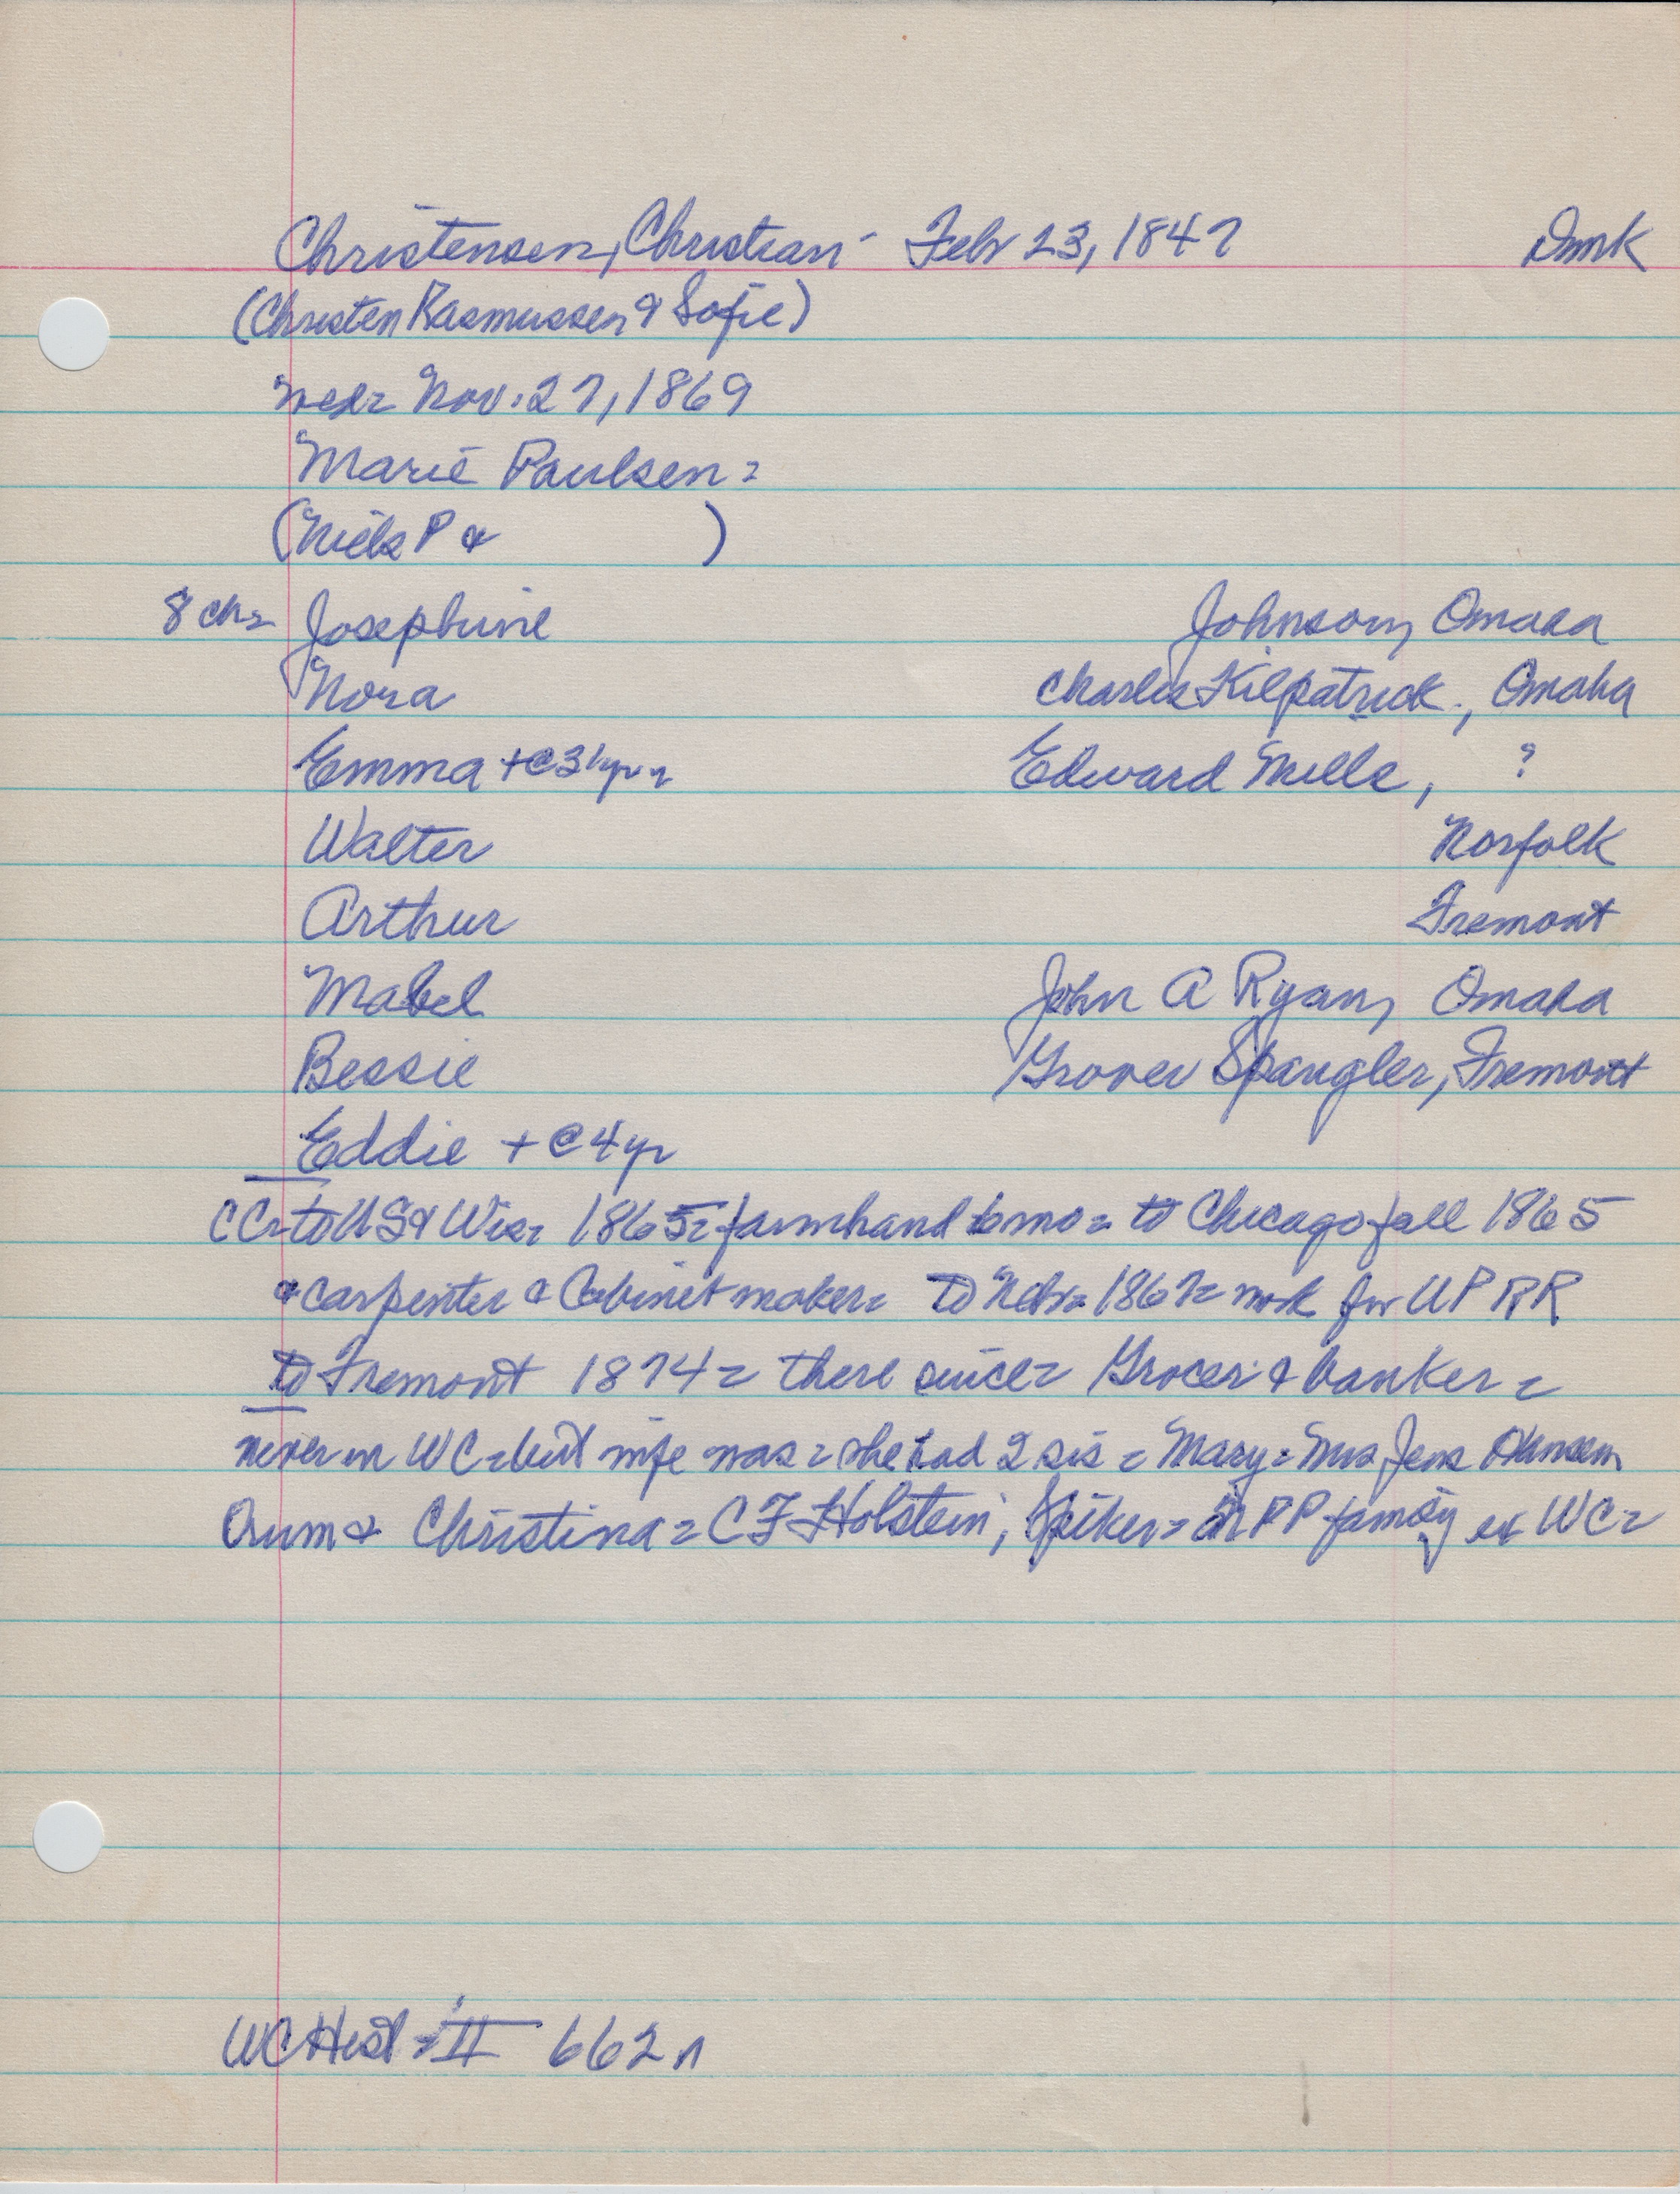 Christensen, Christian - Feb 23, 1847 Dmk
(Christen Rasmussen & Sofie)
Nov. 27, 1869
Marie Paulsen =
(Niels P & )
8 ch = Josephine Johnson, Omaha
Nora Charles Kilpatrick, Omaha
Emma + @ 31 yr = Edward Mills, ?
Walter Norfolk
Arthur Fremont
Mabel John A Ryan, Omaha
Bessie Grover Spangler, Fremont
Eddie + @ 4 yr
CC = to US & Wis = 1865 = farmhand 6 mo = to Chicago fall 1865
& carpenter & Cabinet maker = to Nebr = 1867 = work for UPRR
to Fremont 1874 = there since = Grocer & banker =
never in WC = but wife was = she had 2 sis = Mary = Mrs Jens
Orum & Christina = CF Holstein, Spiker = PP family ex WC =
WC Hist = II 662 n